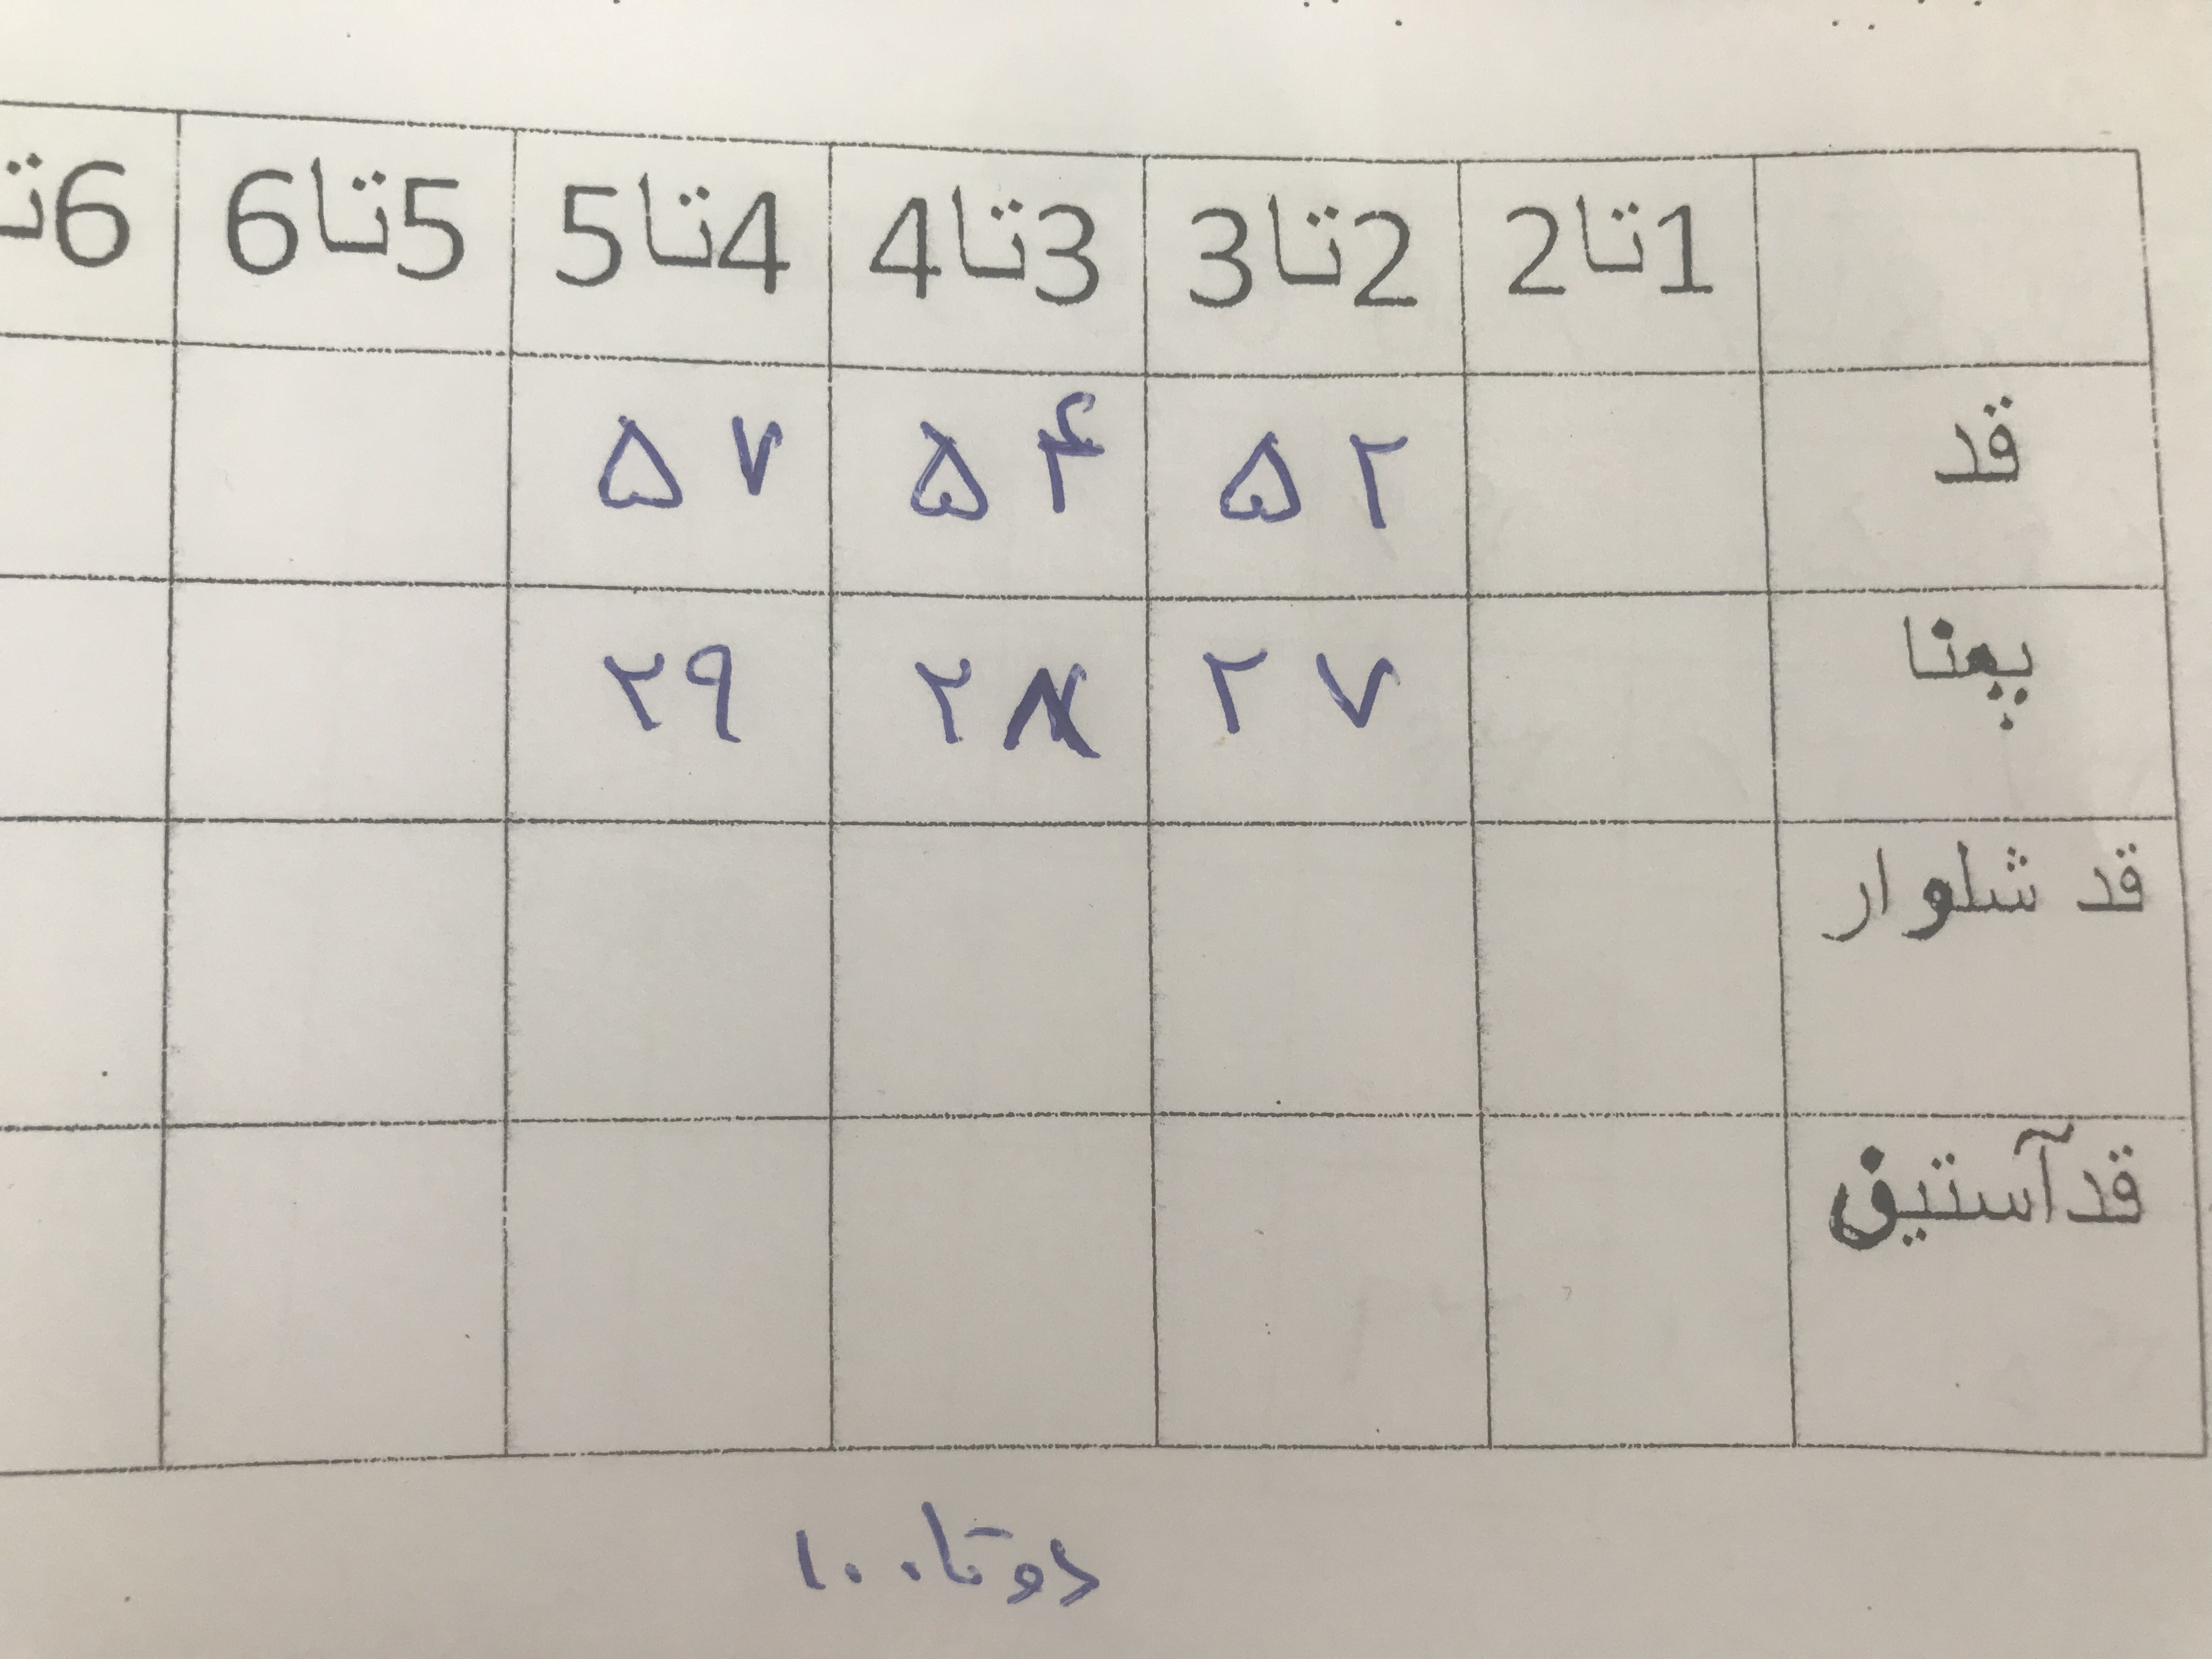 1تا2 2تا3 3تا4 4تا5 5تا6 6تا
قد ۵۲ ۵۴ ۵۷
پهنا ۲۷ ۲۸ ۲۹
قد شلوار
قدآستین
دوتا ۱۰۰